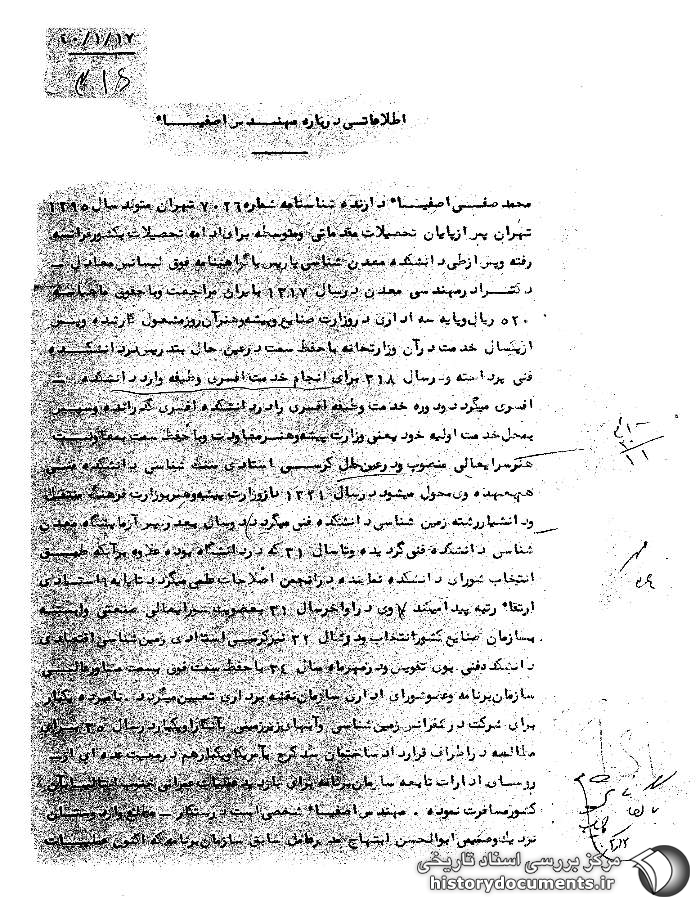 ۴۰/۱/۱۷
اطلاعاتی درباره مهندس اصفیاء
محمد صفی اصفیاء دارنده شناسنامه شماره ۷۰۲۶ تهران متولد سال ۱۲۹۵
تهران پس ازپایان تحصیلات مقدماتی ومتوسطه برای ادامه تحصیلات بکشورفرانسه
رفته وپس ازطی دانشکده معدن شناسی پاریس باگواهینامه فوق لیسانس معادل ـ
دکترا درمهندسی معدن درسال ۱۳۱۷ بایران مراجعت وباحقوق ماهیانه
۵۲۰ ریال وپایه سه اداری دروزارت صنایع وپیشه وهنرآن روزمشغول کارشده وپس
ازیکسال خدمت درآن وزارتخانه باحفظ سمت درعین حال بتدریس دردانشکده
فنی پرداخته ودرسال ۳۱۸ برای انجام خدمت افسری وظیفه وارد دانشکده ـ
افسری میگردد ودوره خدمت وظیفه افسری رادردانشکده افسری گذرانده وسپس
بمحل خدمت اولیه خود یعنی وزارت پیشه وهنرمعاودت وباحفظ سمت بمعاونت
هنرسرایعالی منصوب ودرعین حال کرسی استادی سنگ شناسی دانشکده فنی
هم بعهده وی محول میشود درسال ۱۳۲۱ ازوزارت پیشه وهنربوزارت فرهنگ منتقل
ودانشیاررشته زمین شناسی دانشکده فنی میگردد درسال بعد رییس آزمایشگاه معدن
شناسی دانشکده فنی گردیده وتاسال ۳۱ که دردانشگاه بوده علاوه برآنکه طبق
انتخاب شورای دانشکده نماینده درانجمن اصلاحات علمی میگردد تاپایه ۱ استادی
ارتقاء رتبه پیدا میکند وی دراواخرسال ۳۱ بعضویت شورایعالی صنعتی وابسته
بسازمان صنایع کشورانتخاب ودرسال ۳۲ نیزکرسی استادی زمین شناسی اقتصادی
دانشکده فنی بوی تفویض ودرمهرماه سال ۳۴ باحفظ سمت فوق بسمت مشاورعالی
سازمان برنامه وعضوشورای اداری سازمان نقشه برداری تعیین میگردد. نامبرده یکبار
برای شرکت درکنفرانس زمین شناسی وآبهای زیرزمینی بآنکارا ویکبار درسال ۳۵ برای
مطالعه دراطراف قرارداد ساختمان سد کرج بآمریکا ویکبارهم درمعیت عده ای از
روسای ادارات تابعه سازمان برنامه برای بازدید عملیات عمرانی جنوب ایتالیا بآن
کشورمسافرت نموده . مهندس اصفیاء شخصی است درستکار ـ مطلع وازدوستان
نزدیک وصمیمی ابوالحسن ابتهاج مدیرعامل سابق سازمان برنامه که اکنون عملیات
مرکز بررسی اسناد تاریخی
historydocuments.ir